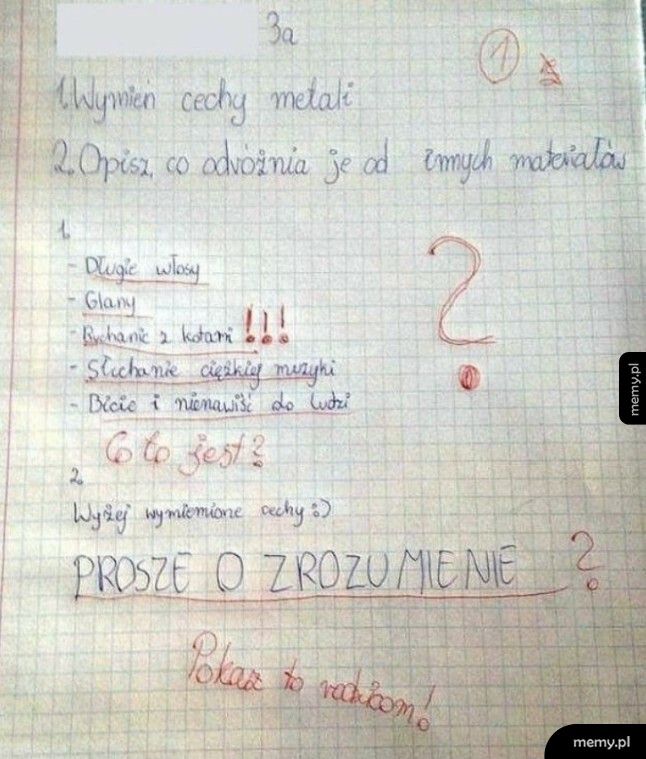 3a
1
1. Wymień cechy metali
2. Opisz, co odróżnia je od innych materiałów
1.
- Długie włosy
- Glany
- Ruchanie z kotami !!!
- Słuchanie ciężkiej muzyki
- Bicie i nienawiść do ludzi
?
Co to jest?
2.
Wyżej wymiemione cechy :)
PROSZE O ZROZUMIENIE ?
Pokaż to rodzicom!
memy.pl
memy.pl